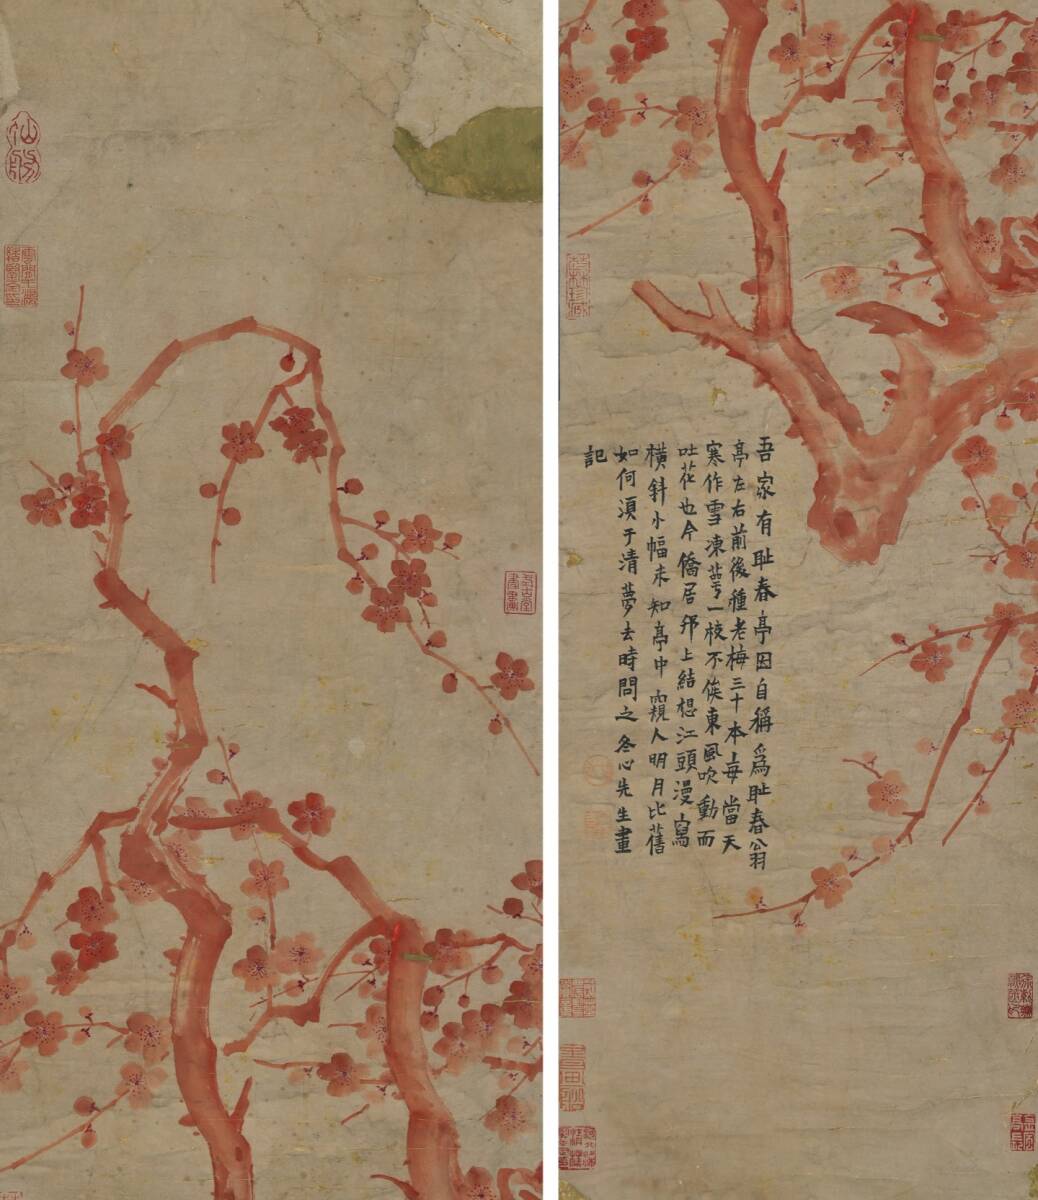 吾家有耻春亭因自稱爲耻春翁
亭左右前後種老梅三十本每當天
寒作雪凍萼一枝不俟東風吹動而
吐花也今僑居邗上結想江頭漫寫
橫斜小幅未知亭中窺人明月比舊
如何須于清夢去時問之冬心先生畫
記